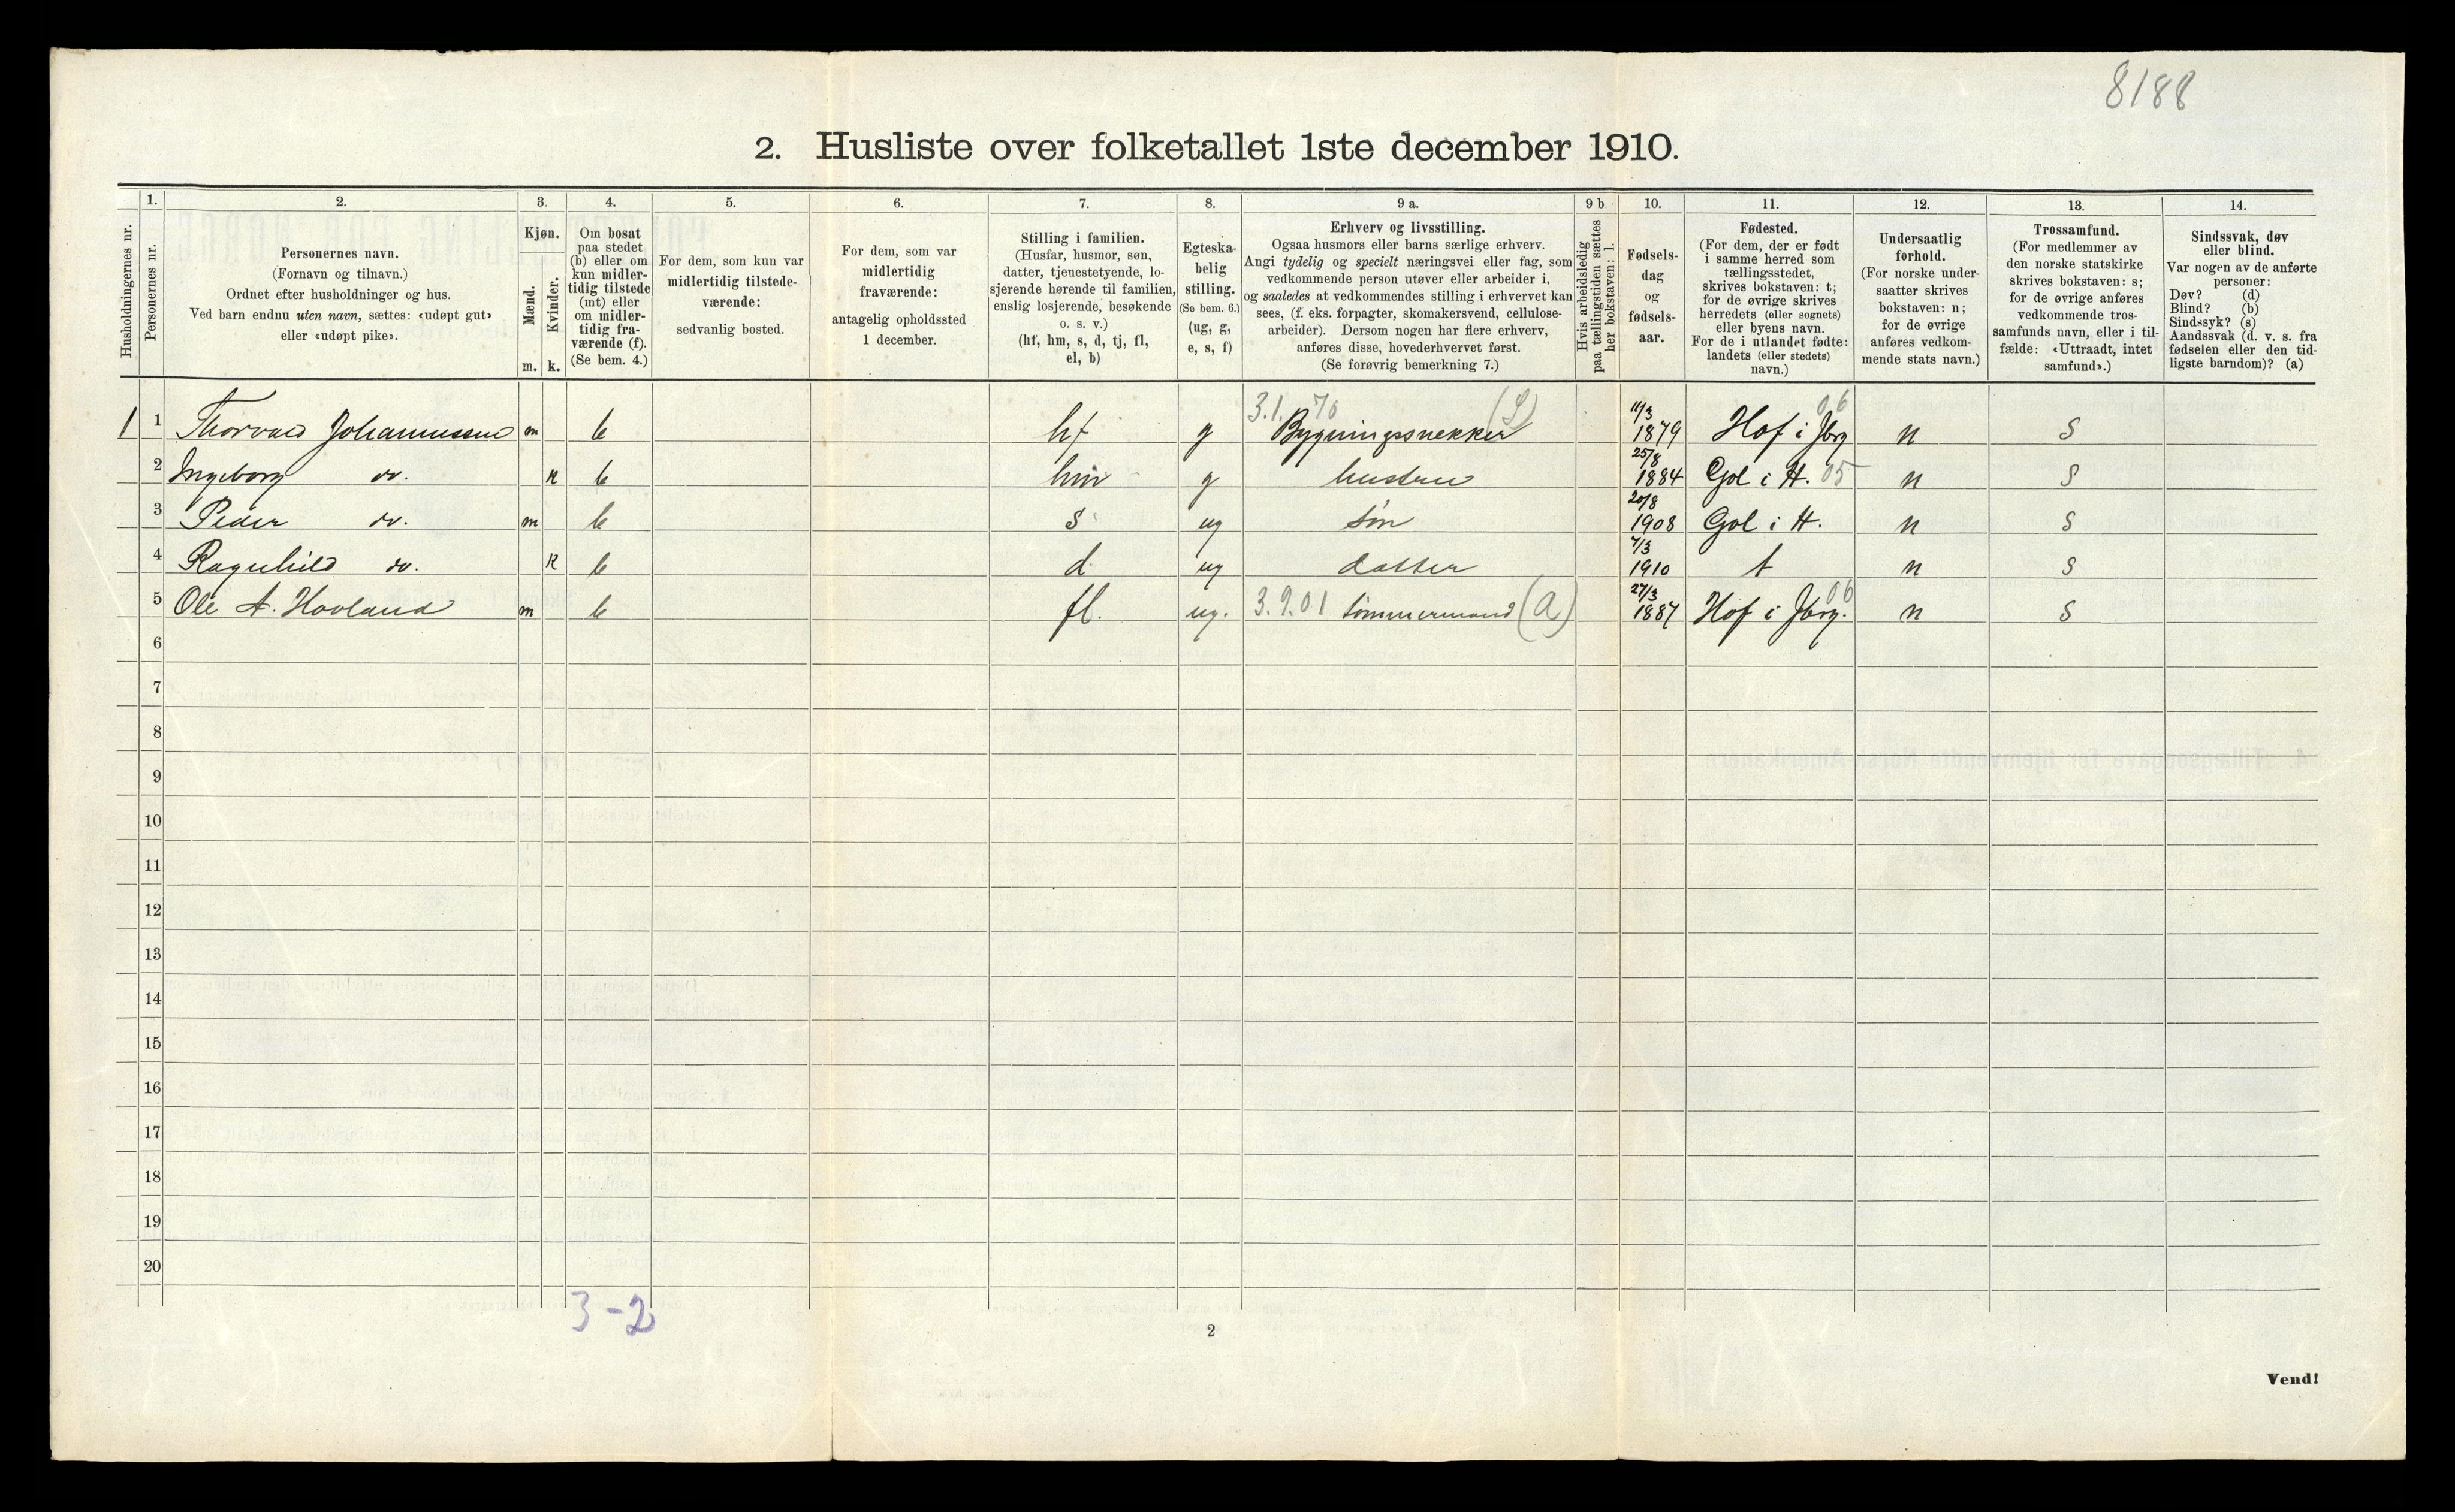 8188
2. Husliste over folketallet 1ste december 1910.
Husholdningernes nr.
1.
Personernes nr.
2.
Personernes navn.
(Fornavn og tilnavn.)
Ordnet efter husholdninger og hus.
Ved barn endnu uten navn, sættes: «udøpt gut»
eller «udøpt pike».
3.
Kjøn.
Mænd.
Kvinder.
m. k.
4.
Om bosat
paa stedet
(b) eller om
kun midler-
tidig tilstede
(mt) eller
om midler-
tidig fra-
værende (f).
(Se bem. 4.)
5.
For dem, som kun var
midlertidig tilstede-
værende:
sedvanlig bosted.
6.
For dem, som var
midlertidig
fraværende:
antagelig opholdssted
1 december.
7.
Stilling i familien.
(Husfar, husmor, søn,
datter, tjenestetyende, lo-
sjerende hørende til familien,
enslig losjerende, besøkende
o. s. v.)
(hf, hm, s, d, tj, fl,
el, b)
8.
Egteska-
belig
stilling.
(Se bem. 6.)
(ug, g,
e, s, f)
9 a.
Erhverv og livsstilling.
Ogsaa husmors eller barns særlige erhverv.
Angi tydelig og specielt næringsvei eller fag, som
vedkommende person utøver eller arbeider i,
og saaledes at vedkommendes stilling i erhvervet kan
sees, (f. eks. forpagter, skomakersvend, cellulose-
arbeider). Dersom nogen har flere erhverv,
anføres disse, hovederhvervet først.
(Se forøvrig bemerkning 7.)
9 b.
Hvis arbeidsledig
paa tællingstiden sættes
her bokstaven: l.
10.
Fødsels-
dag
og
fødsels-
aar.
11.
Fødested.
(For dem, der er født
i samme herred som
tællingsstedet,
skrives bokstaven: t;
for de øvrige skrives
herredets (eller sognets)
eller byens navn.
For de i utlandet fødte:
landets (eller stedets)
navn.)
12.
Undersaatlig
forhold.
(For norske under-
saatter skrives
bokstaven: n;
for de øvrige
anføres vedkom-
mende stats navn.)
13.
Trossamfund.
(For medlemmer av
den norske statskirke
skrives bokstaven: s;
for de øvrige anføres
vedkommende tros-
samfunds navn, eller i til-
fælde: «Uttraadt, intet
samfund».)
14.
Sindssvak, døv
eller blind.
Var nogen av de anførte
personer:
Døv? (d)
Blind? (b)
Sindssyk? (s)
Aandssvak (d. v. s. fra
fødselen eller den tid-
ligste barndom)? (a)
1 1 Thorvald Johannessen m b hf g 3.1. 70 Bygningssnekker (S) 11/3 1879 Hof i Jbrg 06 n S
2 Ingeborg do. k b hm g hustru 25/8 1884 Gol i H. 05 n S
3 Peder do. m b s ug søn 20/8 1908 Gol i H. n S
4 Ragnhild do. k b d ug datter 7/3 1910 t n S
5 Ole A. Hovland m b fl. ug. 3.9.01 tømmermand (a) 27/3 1887 Hof i Jbrg. 06 n S
6
7
8
9
10
11
12
13
14
15
16
17
18
19
20
3-2
2
Vend!